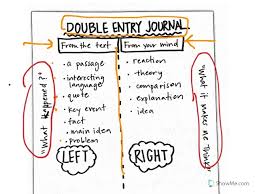 DOUBLE ENTRY JOURNAL
From the text
From your mind
• a passage
• interesting
language
• quote
• key event
• fact
• main idea
• problem
LEFT
"What Happened?"
• reaction
• theory
• comparison
• explanation
• idea
RIGHT
"What it makes me think"
ShowMe.com